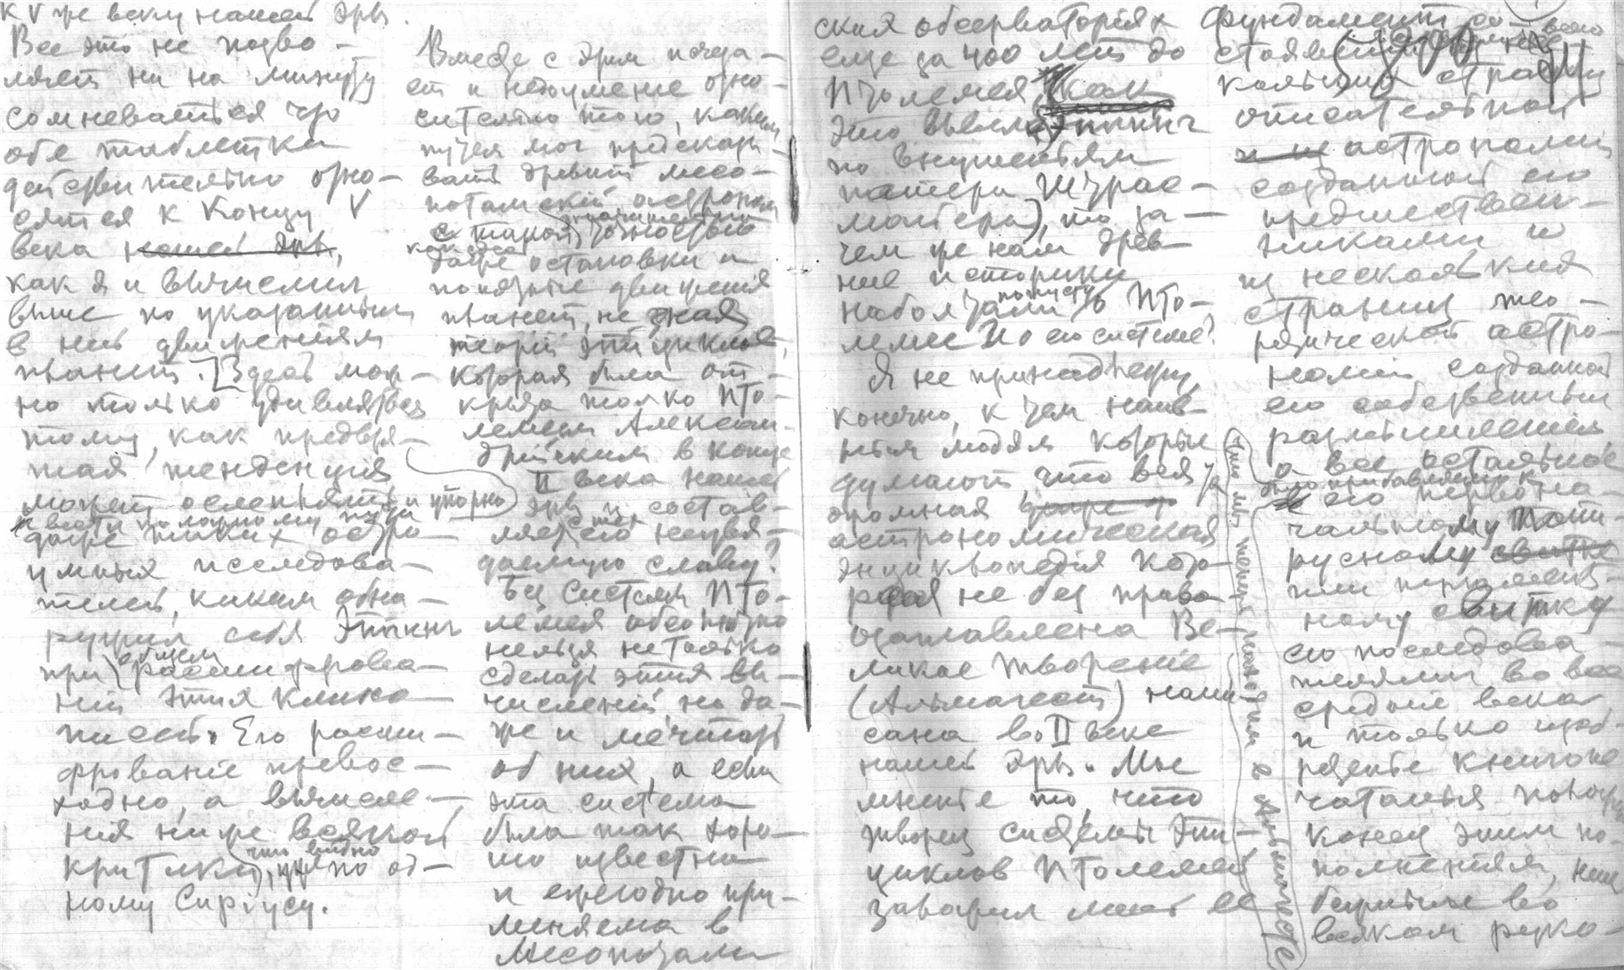 к V же веку нашей эры.
Все это не позво-
ляет ни на минуту
сомневаться что
обе таблетки
действительно отно-
сятся к концу V
века нашей эры,
как я и вычислил
выше по указанным
в них движениям
планет. [Здесь мож-
но только удивляться
тому, как предвзя-
тая тенденция
может ослеплять и упорно
вести по ложному пути
даже таких остро-
умных исследова-
телей, каким обна-
ружил себя Эппинг
при общем расшифрова-
нии этих клино-
писей. Его расши-
фрование превос-
ходно, а вычисле-
ния ниже всякой
критики, что видно уже по од-
ному Сириусу.
Вместе с этим исчеза-
ет и недоумение отно-
сительно того, каким
путем мог предсказы-
вать древний месо-
потамский астроном
с такой точностью
даже остановки и
попятные движения
планет, не зная
теории эпициклов,
которая была от-
крыта только Пто-
лемеем Алексан-
дрийским в конце
II века нашей
эры и состав-
ляет с тех его неувя-
даемую славу?
Без системы Пто-
лемея абсолютно
нельзя не только
сделать этих вы-
числений, но да-
же и мечтать
об них, а если
эта система
была так хоро-
шо известна
и ежегодно при-
меняема в
Месопотами
ских обсерваторіях
еще за 400 лет до
Птолемея, как
это вывел Эппинг
по внушениям
патера Штрас-
майера), то за-
чем же нам древ-
ние историки
наболтали попусту о Пто-
лемее и о его системе?
Я не принадлежу,
конечно, к тем наив-
ным людям которые
думают, что вся та
огромная
астрономическая
энциклопедія кото-
рая не без права
озаглавлена Ве-
ликое творение
(Альмагест) напи-
сана во II веке
нашей эры. Мы
мните то, что
творец системы эпи-
циклов Птолемей
заварил лишь ее
фундамент со-
стоявший из не-
скольких страниц
описательной
астрономии
созданной его
предшествен-
никами и
из нескольких
страниц тео-
ретической астро-
номии созданной
его собственным
размышлением
а все остальное
было прибавлено к
его первона-
чальному папи-
русному свитку
или пергамент-
ному свитку
его последова-
телями во все
средние века
и только изоб-
ретение книгопе-
чатанья положи
конец этим по-
полнениям, неиз-
бежным во
всяком руко-
что мы теперь находим в Альмагесте